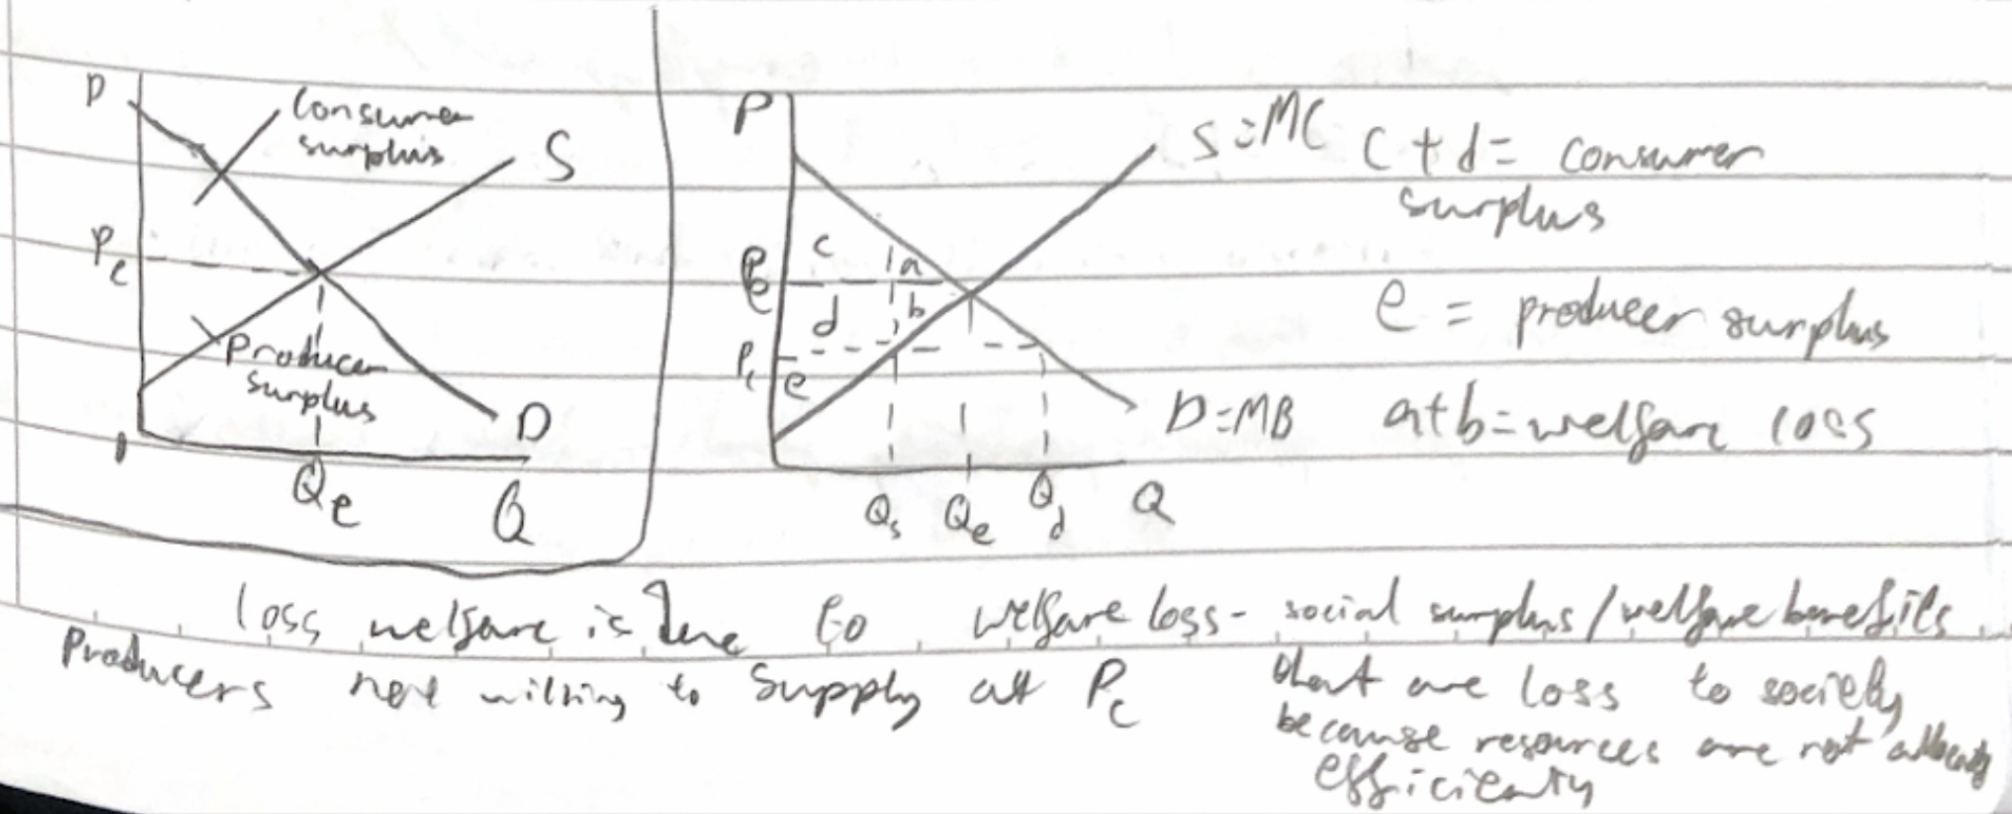 P
Consumer
surplus
S
Pe
Producer
surplus
D
Qe
Q
P
S=MC
c
a
Pe
d
b
Pc
e
D=MB
Qs
Qe
Qd
Q
c+d= consumer
surplus
e = producer surplus
a+b=welfare loss
loss welfare is due to
Producers not willing to supply at Pc
welfare loss- social surplus/welfare benefits
that are loss to society
because resources are not
efficiently